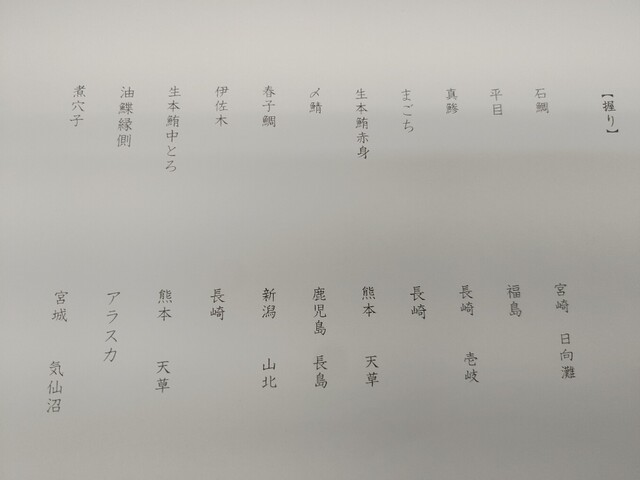 【握り】
石鯛 宮崎 日向灘
平目 福島
真鯵 長崎 壱岐
まごち 長崎
生本鮪赤身 熊本 天草
〆鯖 鹿児島 長島
春子鯛 新潟 山北
伊佐木 長崎
生本鮪中とろ 熊本 天草
油鰈縁側 アラスカ
煮穴子 宮城 気仙沼